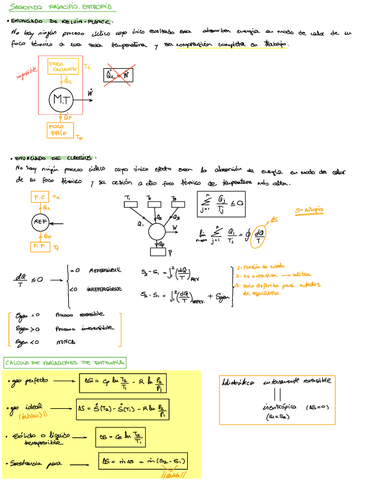 SEGUNDO PRINCIPIO. ENTROPÍA
• ENUNCIADO DE KELVIN-PLANCK:
No hay ningún proceso cíclico cuyo único resultado sea absorber energía en modo de calor de un
foco térmico a una sola temperatura y su conversión completa en trabajo.
imposible
FOCO CALIENTE
Tc
Qc
M.T
Ẇ
QF
FOCO FRÍO
TF
• ENUNCIADO DE CLAUSIUS:
No hay ningún proceso cíclico cuyo único efecto sea la absorción de energía en modo de calor
de un foco térmico y su cesión a otro foco térmico de temperatura más alta.
F.C
REF
F.F
T1 T2 T3
Q1 Q2 Q3
W
Σ Qj/Tj ≤ 0
lim Σ Qj/Tj = ∮ dQ/T
ΔS
dQ/T ≤ 0
=0 REVERSIBLE
<0 IRREVERSIBLE
S2 - S1 = ∫(dQ/T)REV
S2 - S1 = ∫(dQ/T) + Sgen
Sgen = 0 Proceso reversible
Sgen > 0 Proceso irreversible
Sgen < 0 NUNCA
CÁLCULO DE VARIACIONES DE ENTROPÍA
• gas perfecto → ΔS = Cp ln T2/T1 - R ln P2/P1
• gas ideal (tablas) → ΔS = S°(T2) - S°(T1) - R ln P2/P1
• Sólido o líquido → ΔS = Ce ln T2/T1
incompresible
• Sustancia pura → ΔS = ṁ ΔS = ṁ (S2 - S1)
tablas
Adiabática internamente reversible
isentrópica (ΔS=0)
(S1=S2)